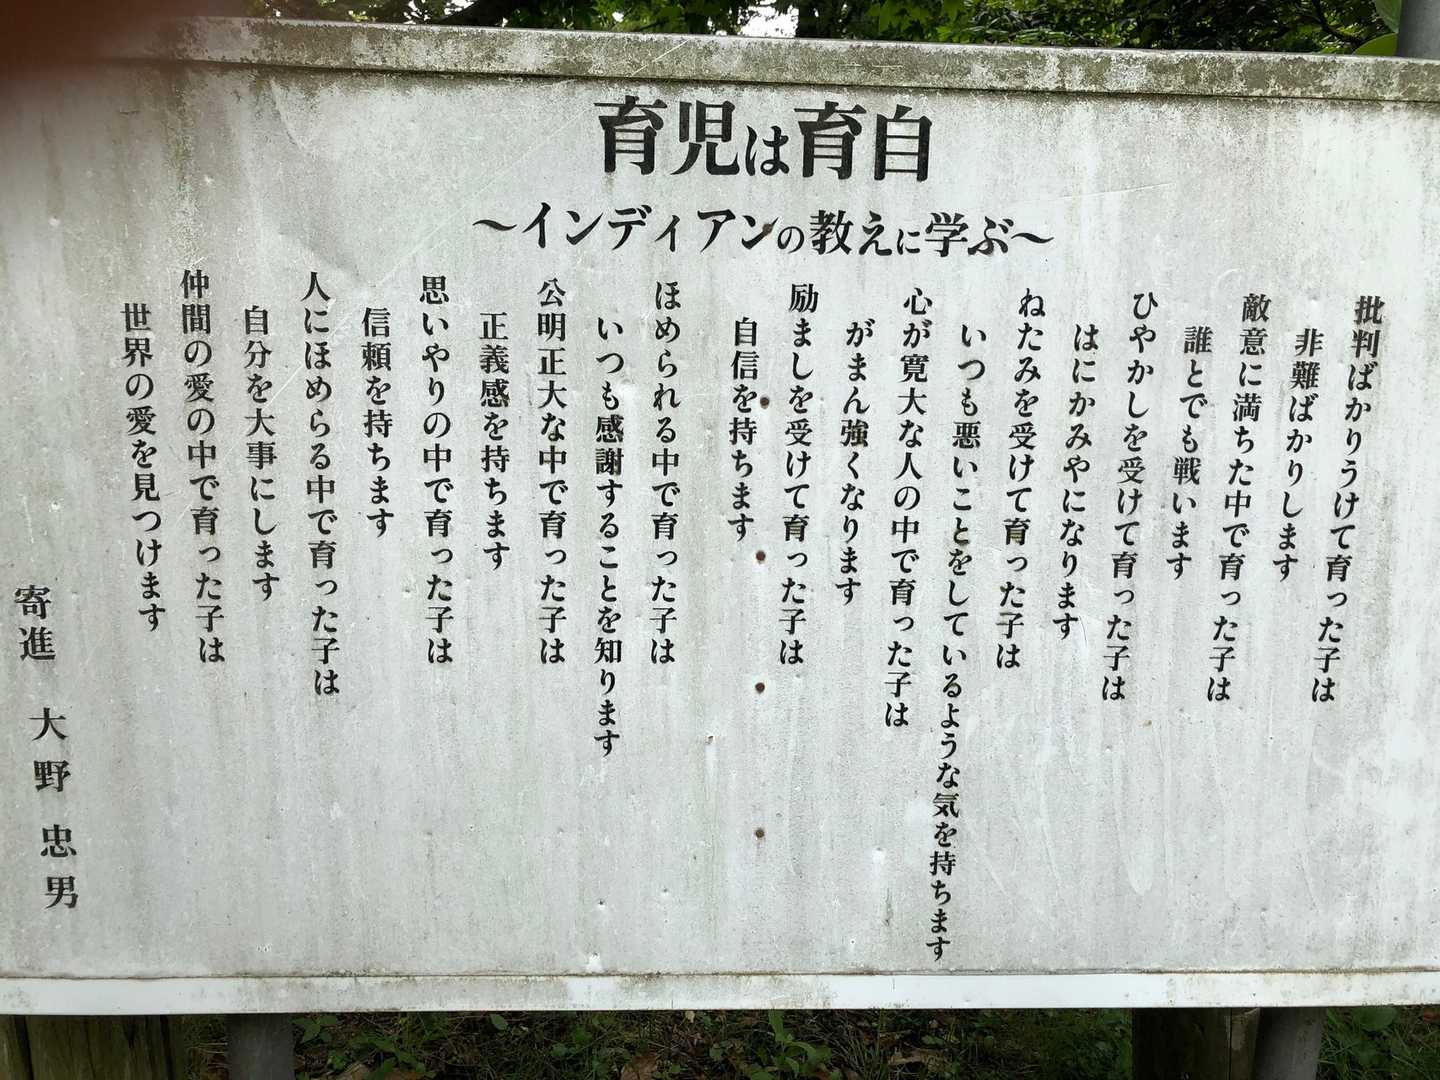 育児は育自
～インディアンの教えに学ぶ～
批判ばかりうけて育った子は
非難ばかりします
敵意に満ちた中で育った子は
誰とでも戦います
ひやかしを受けて育った子は
はにかみやになります
ねたみを受けて育った子は
いつも悪いことをしているような気を持ちます
心が寛大な人の中で育った子は
がまん強くなります
励ましを受けて育った子は
自信を持ちます
ほめられる中で育った子は
いつも感謝することを知ります
公明正大な中で育った子は
正義感を持ちます
思いやりの中で育った子は
信頼を持ちます
人にほめらる中で育った子は
自分を大事にします
仲間の愛の中で育った子は
世界の愛を見つけます
寄進 大野忠男